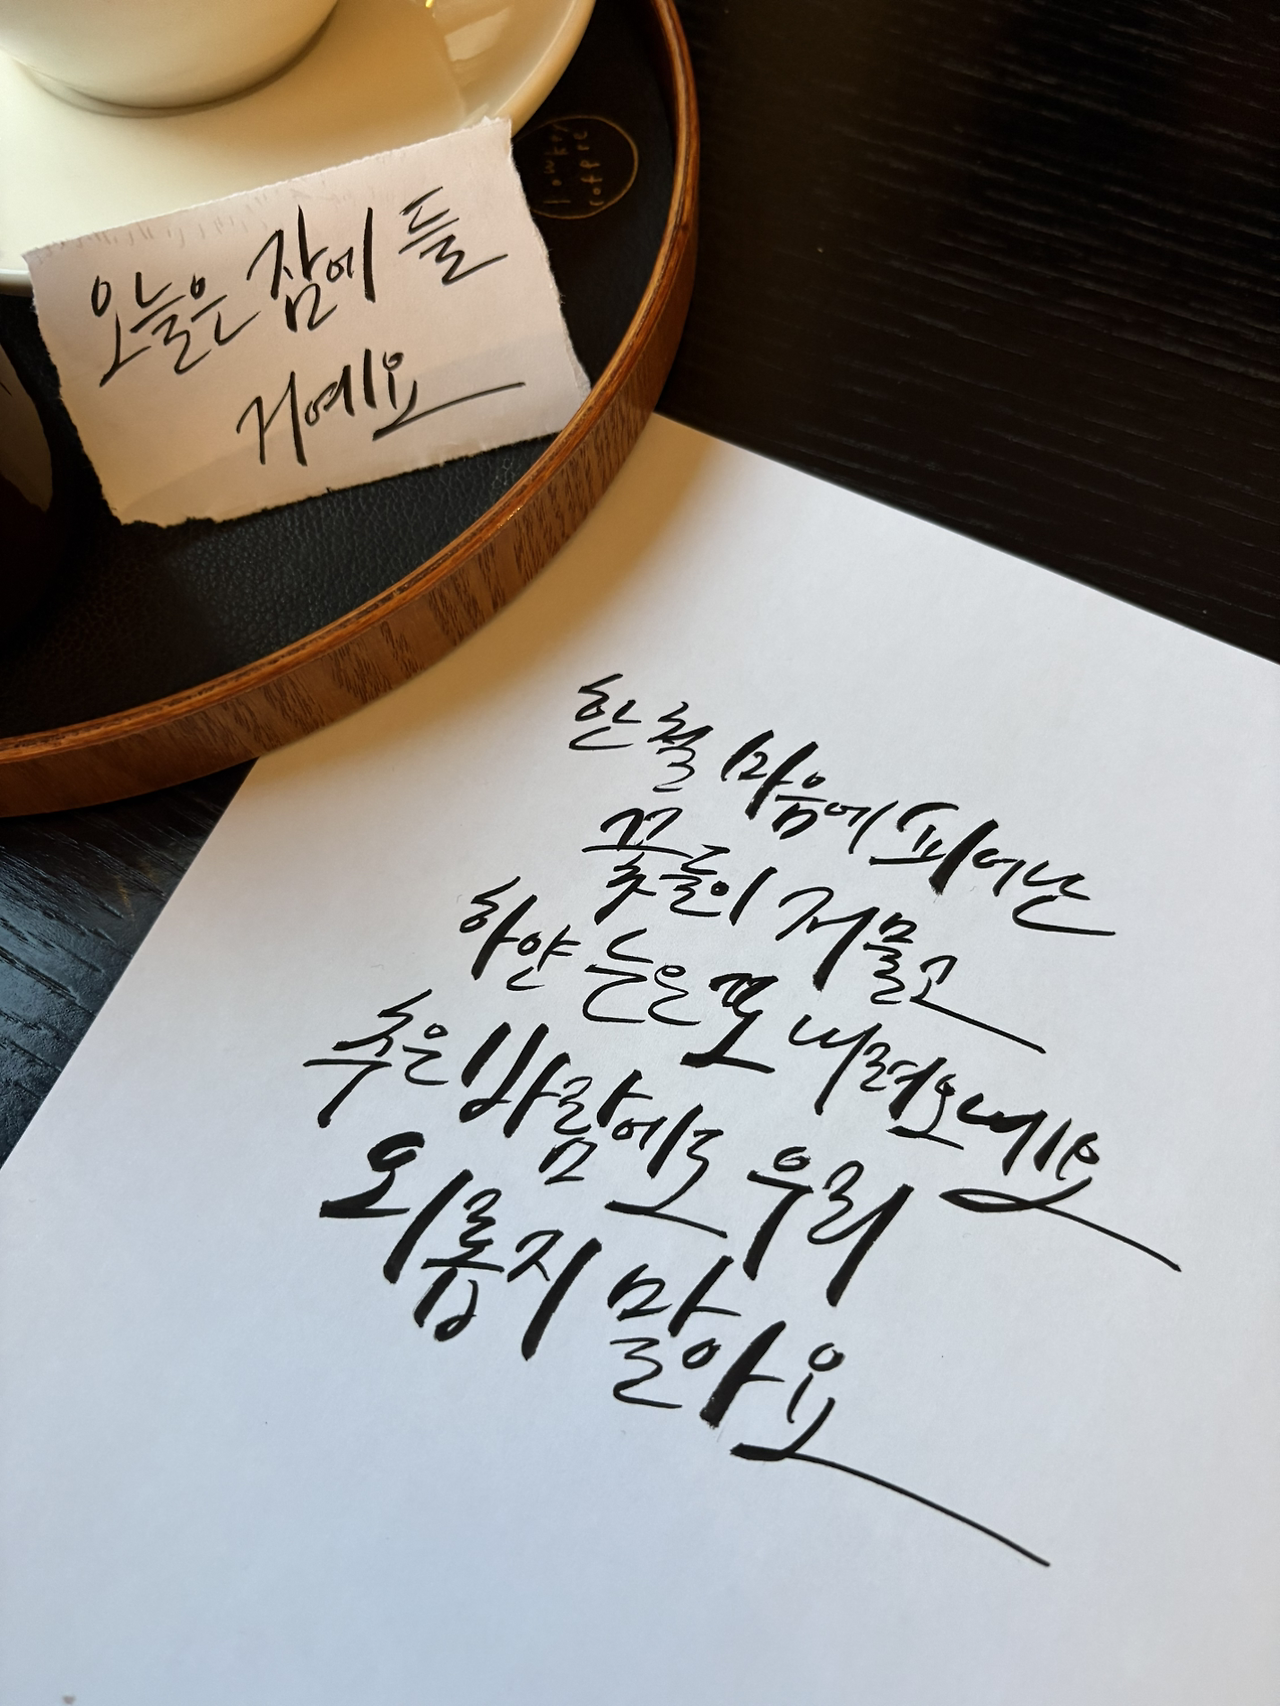 lowkey
coffee
오늘은 잠에 들
거예요
한철 마음에 피어난
꽃들이 저물고
하얀 눈은 또 내려오네요
추운 바람에도 우리
외롭지 말아요